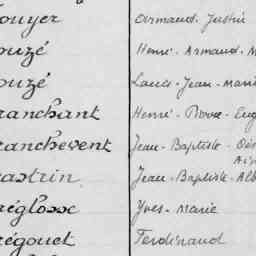 ouyer Armand-Justin
ouzé Henri-Armand-M
ouzé Louis-Jean-Marie
ranchant Henri-Pierre-Eug
ranchevent Jean-Baptiste-Dés
Aim
astrin Jean-Baptiste-Alb
régloxe Yves-Marie
régouet Ferdinand